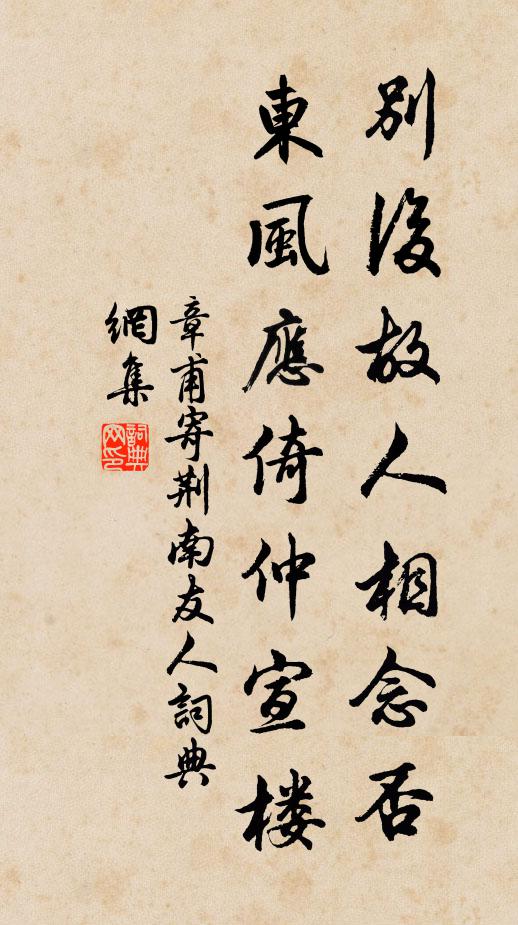 別後故人相念否
東風應倚仲宣楼
章甫寄荆南友人詞典
網集
詞典网印